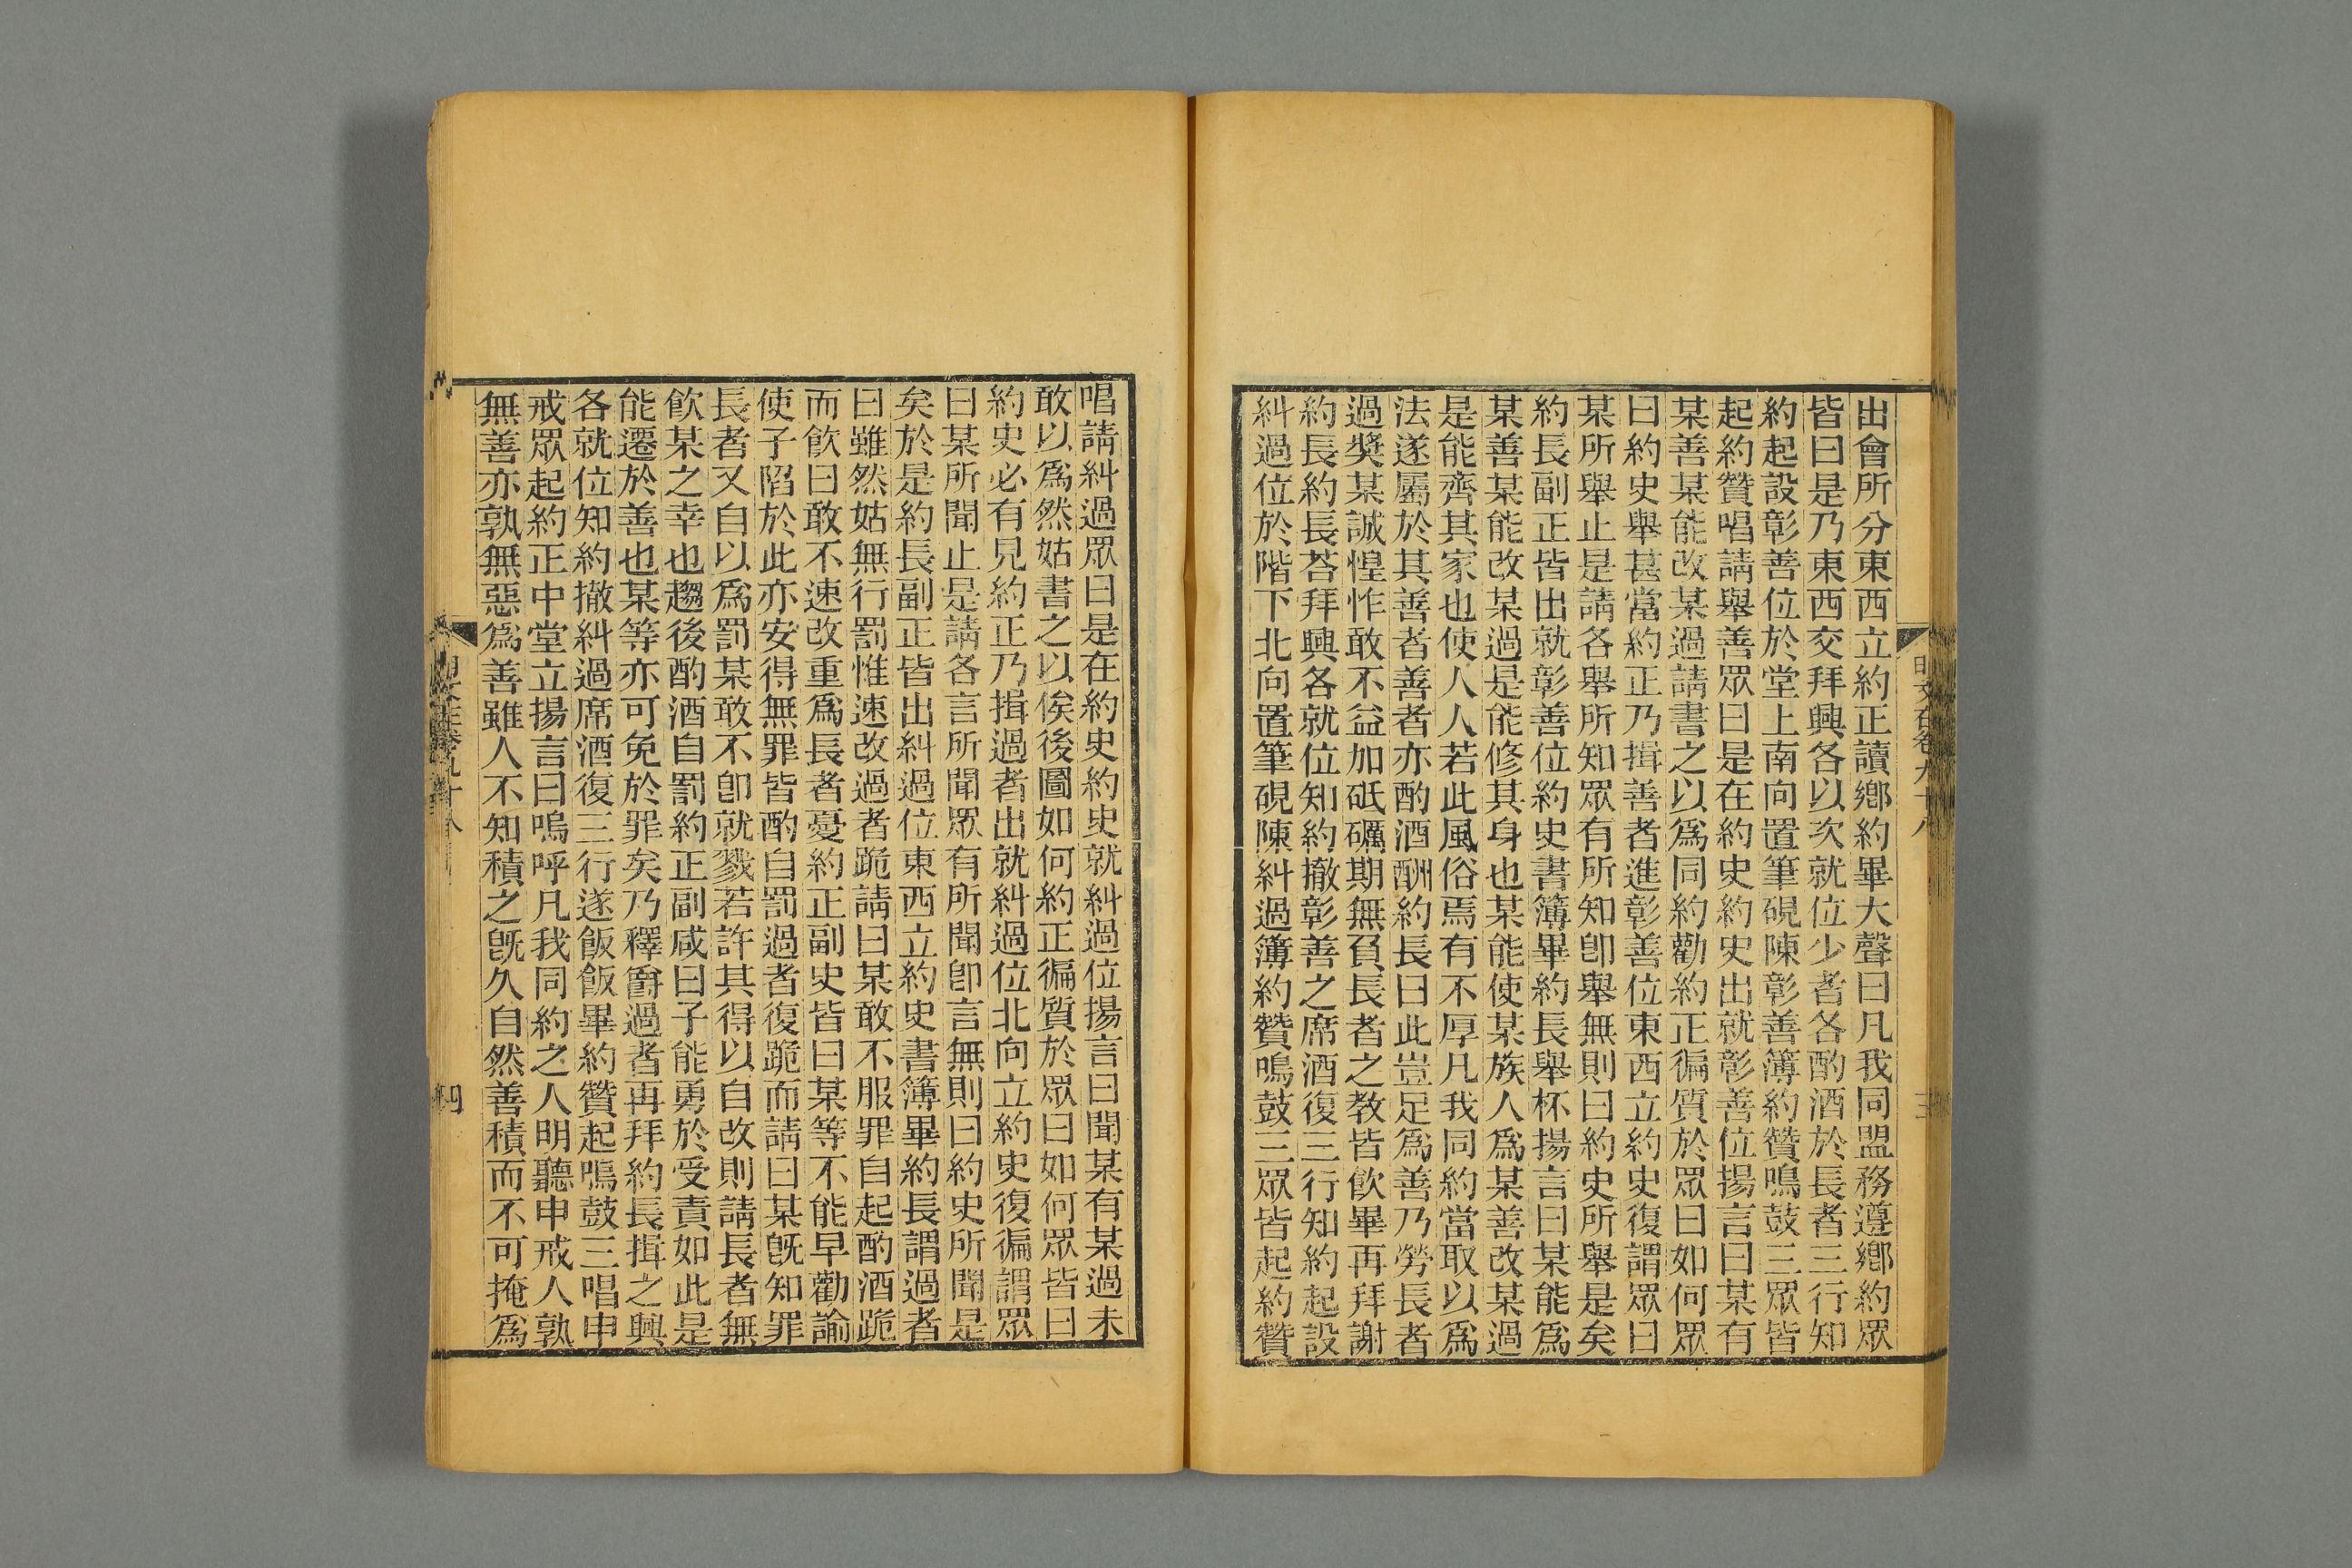 出會所分東西立約正讀鄉約畢大聲曰凡我同盟務遵鄉約眾
皆曰是乃東西交拜興各以次就位少者各酌酒於長者三行知
約起設彰善位於堂上南向置筆硯陳彰善簿約贊鳴鼓三眾皆
起約贊唱請舉善眾曰是在約史約史出就彰善位揚言曰某有
某善某能改某過請書之以爲同約勸約正徧質於眾曰如何眾
曰約史舉甚當約正乃揖善者進彰善位東西立約史復謂眾曰
某所舉止是請各舉所知眾有所知卽舉無則曰約史所舉是矣
約長副正皆出就彰善位約史書簿畢約長舉杯揚言曰某能爲
某善某能改某過是能修其身也某能使某族人爲某善改某過
是能齊其家也使人人若此風俗焉有不厚凡我同約當取以爲
法遂屬於其善者善者亦酌酒酬約長曰此豈足爲善乃勞長者
過獎某誠惶怍敢不益加砥礪期無負長者之教皆飲畢再拜謝
約長約長荅拜興各就位知約撤彰善之席酒復三行知約起設
糾過位於階下北向置筆硯陳糾過簿約贊鳴鼓三眾皆起約贊
明文在卷九十八
三
唱請糾過眾曰是在約史約史就糾過位揚言曰聞某有某過未
敢以爲然姑書之以俟後圖如何約正徧質於眾曰如何眾皆曰
約史必有見約正乃揖過者出就糾過位北向立約史復徧謂眾
曰某所聞止是請各言所聞眾有所聞卽言無則曰約史所聞是
矣於是約長副正皆出糾過位東西立約史書簿畢約長謂過者
曰雖然姑無行罰惟速改過者跪請曰某敢不服罪自起酌酒跪
而飲曰敢不速改重爲長者憂約正副史皆曰某等不能早勸諭
使子陷於此亦安得無罪皆酌自罰過者復跪而請曰某旣知罪
長者又自以爲罰某敢不卽就戮若許其得以自改則請長者無
飲某之幸也趨後酌酒自罰約正副咸曰子能勇於受責如此是
能遷於善也某等亦可免於罪矣乃釋爵過者再拜約長揖之興
各就位知約撤糾過席酒復三行遂飯飯畢約贊起鳴鼓三唱申
戒眾起約正中堂立揚言曰嗚呼凡我同約之人明聽申戒人孰
無善亦孰無惡爲善雖人不知積之旣久自然善積而不可掩爲
明文在卷九十八
四